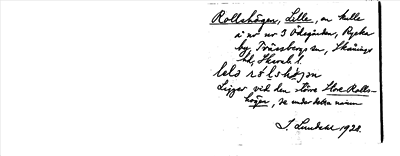 Rollshögen, Lille, en kulle
i nv nr 3 Ödegården, Rycka
by, Tvässbergs sn, Skånings
hd, Skarab. l.
lels rólshöjen
Ligger vid den större Stora Rolls-
högen, se under detta namn
I. Lundahl 1928.